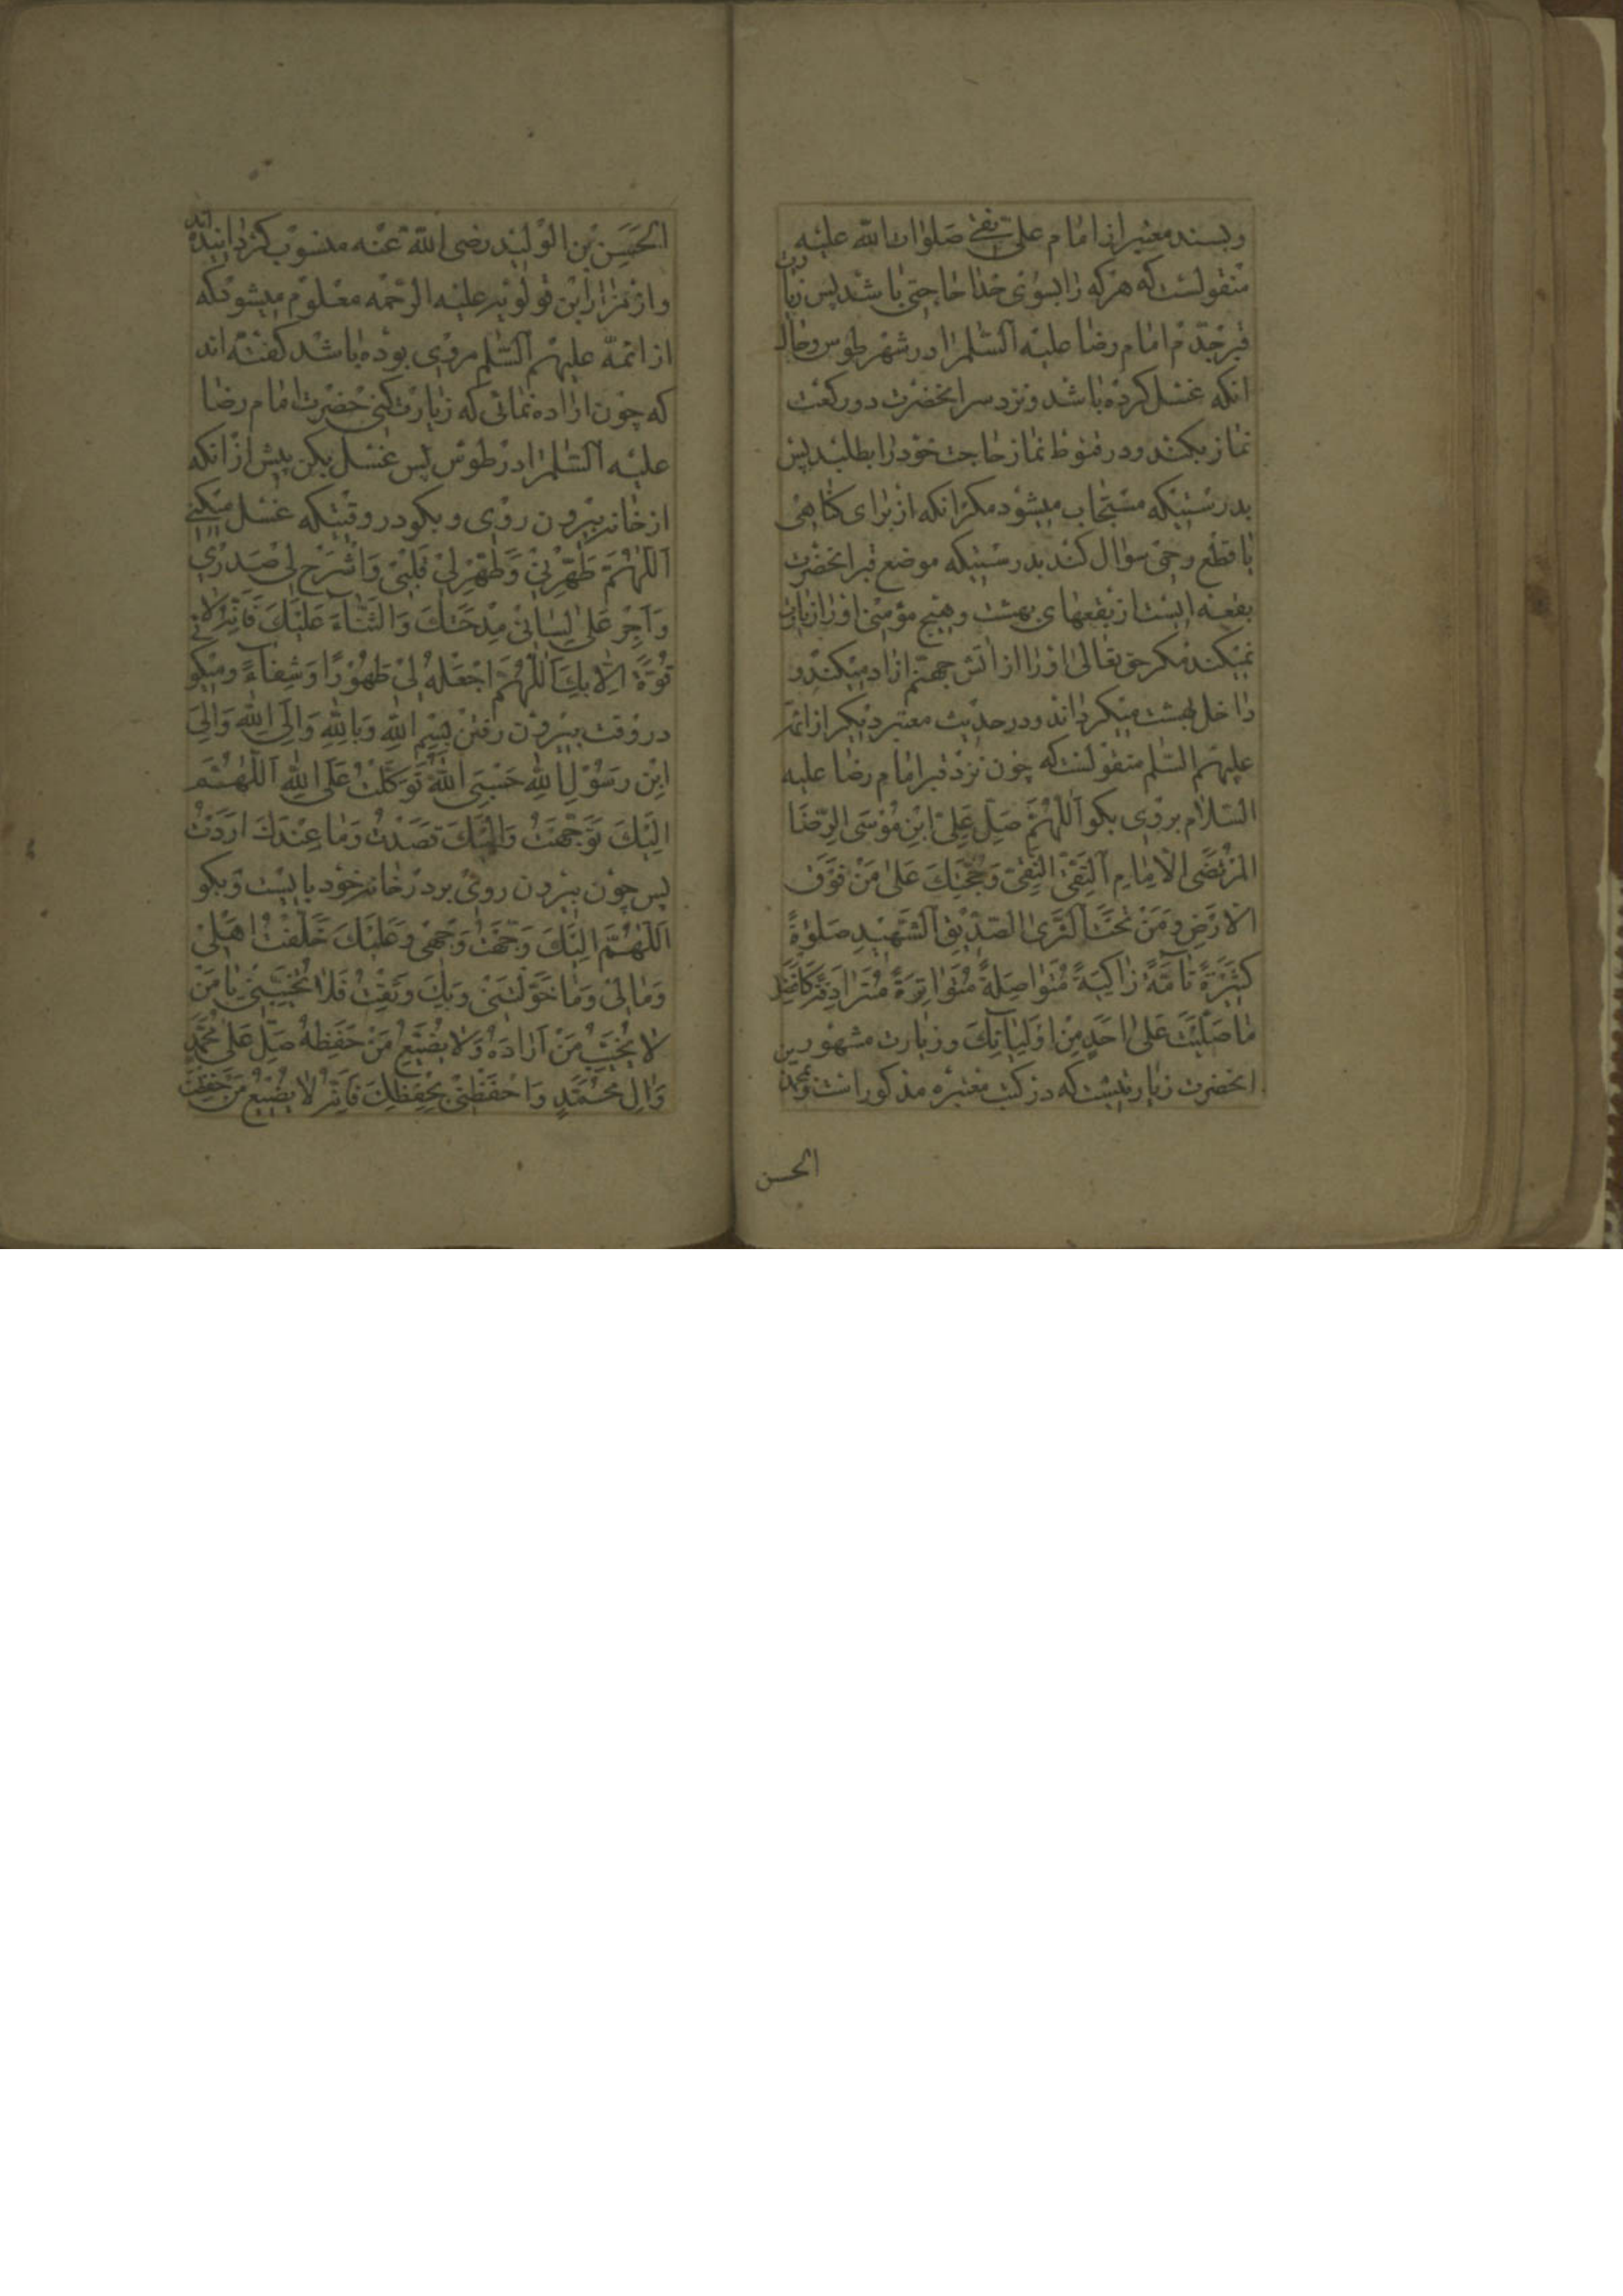 وبسند معتبر از امام علی نقی صلوات الله علیه
منقولست که هر که را بسوی خدا حاجتی باشد پس زیارت
قبر جدّم امام رضا علیه السّلم را در شهر طوس و حال
انکه غسل کرده باشد و نزد سر انحضرت دو رکعت
نماز بکند و در قنوط نماز حاجت خود را بطلبد پس
بدرستیکه مستجاب میشود مکر انکه از برای کناهی
یا قطع رحمی سؤال کند بدرستیکه موضع قبر انحضرت
بقعه ایست از بقعهای بهشت و هیچ مؤمنی او را زیارت
نمیکند مکر حق تعالی او را از آتش جهنّم ازاد میکند و
داخل بهشت میکرداند و در حدیث معتبر دیکر از ائمّه
علیهم السّلم منقولست که چون نزد قبر امام رضا علیه
السّلام بروی بکو اَللّهُمَّ صَلِّ عَلِیِّ ابْنِ مُوْسَی الرِّضَا
المُرْتَضَی الْاِمَامِ اَلتَّقِیِّ النَّقِیِّ وَحُجَّتِكَ عَلیٰ مَنْ فَوْقَ
الْاَرْضِ وَ مَنْ تَحْتَ اَلثَّریٰ الصِّدِّیْقِ اَلشَّهِیْدِ صَلٰوةً
کَثِیْرَةً تَامَّةً زَاکِیَةً مُتَوَاصِلَةً مُتَوَاتِرَةً مُتَرَادِفَةً کَاَفْضَلِ
مَا صَلَّیْتَ عَلیٰ اَحَدٍ مِنْ اَوْلِیَائِكَ و زیارت مشهورین
انحضرت زیارتیست که در کتب معتبره مذکور است و محمّد بن
الحسن
الحَسَنِ بْنِ الوَلِیْد رضی اللّه عَنْه منسوب کردانیده اند
و از مزار اِبْن قولویه علیه الرّحمه معلوم میشود که
از ائمّه علیهم السّلم مروی بوده باشد کفته اند
که چون اراده نمائی که زیارت کنی حضرت امام رضا
علیه السّلم را در طوس پس غسل بکن پیش از انکه
از خانه بیرون روی و بکو در وقتیکه غسل میکنی
اَللّٰهُمَّ طَهِّرْنِیْ وَطَهِّرْ لِیْ قَلْبِیْ وَاشْرَحْ لِی صَدْرِیْ
وَاَجْرِ عَلیٰ لِسَانِیْ مِدْحَتَكَ وَالثَّنَاۤءَ عَلَیْكَ فَاِنَّه لَا
قُوَّةَ اِلَّا بِكَ اَللّٰهُمَّ اجْعَلْهُ لِیْ طَهُوْرًا وَشِفَاۤءً و میکو
در وقت بیرون رفتن بِسْمِ اللّٰهِ وَبِاللّٰهِ وَاِلَی اللّٰهِ وَاِلَی
ابْنِ رَسُوْلِ اللّٰهِ حَسْبِیَ اللّٰهُ تَوَکَّلْتُ عَلَی اللّٰهِ اَللّٰهُمَّ
اِلَیْكَ تَوَجَّهْتُ وَاِلَیْكَ قَصَدْتُ وَمَا عِنْدَكَ اَرَدْتُ
پس چون بیرون روی بر در خانه خود بایست و بکو
اَللّٰهُمَّ اِلَیْكَ وَجَّهْتُ وَجْهِیْ وَعَلَیْكَ خَلَّفْتُ اَهْلِیْ
وَمَالِیْ وَمَا خَوَّلْتَنِیْ وَبِكَ وَثِقْتُ فَلَا تُخَیِّبْنِیْ یَا مَنْ
لَا یُخَیِّبُ مَنْ اَرَادَهُ وَلَا یُضَیِّعُ مَنْ حَفِظَهُ صَلِّ عَلیٰ مُحَمَّدٍ
وَاٰلِ مُحَمَّدٍ وَاحْفَظْنِیْ بِحِفْظِكَ فَاِنَّهُ لَا یُضَیِّعُ مَنْ حَفِظْتَ